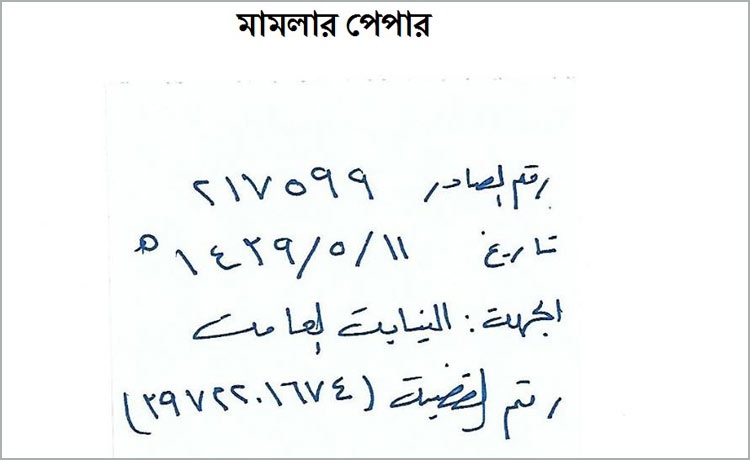 মামলার পেপার
رقم الصادر ٢١٧٥٩٩
تاريخ ١٤٣٩/٥/١١ هـ
الجهة : النيابة العامة
رقم القضية (٣٩٧٢٢٠١٦٧٤)